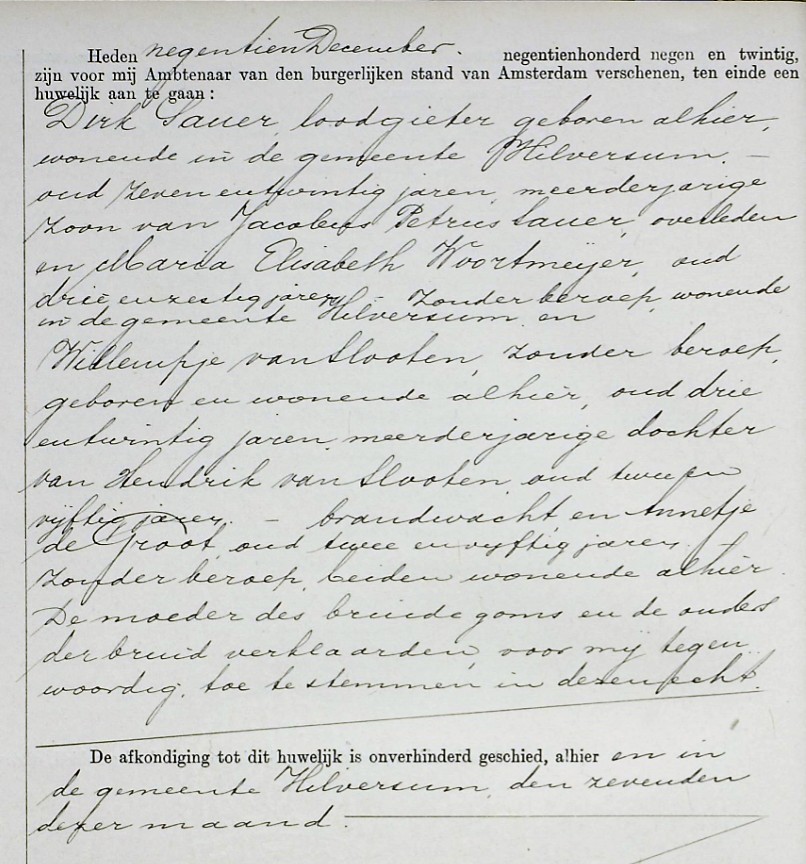 Heden negentien December. negentienhonderd negen en twintig,
zijn voor mij Ambtenaar van den burgerlijken stand van Amsterdam verschenen, ten einde een
huwelijk aan te gaan:
Dirk Sauer, loodgieter geboren alhier,
wonende in de gemeente Hilversum, –
oud zeven en twintig jaren, meerderjarige
zoon van Jacobus Petrus Sauer, overleden
en Maria Elisabeth Woortmeijer, oud
drie en zestig jaren, – zonder beroep, wonende
in de gemeente Hilversum en
Willempje van Slooten, zonder beroep,
geboren en wonende alhier, oud drie
en twintig jaren, meerderjarige dochter
van Hendrik van Slooten, oud twee en
vijftig jaren. – brandwacht, en Annetje
de Groot, oud twee en vijftig jaren. –
zonder beroep, beiden wonende alhier.
De moeder des bruidegoms en de ouders
der bruid verklaarden, voor mij tegen
woordig, toe te stemmen in dezen echt.
De afkondiging tot dit huwelijk is onverhinderd geschied, alhier en in
de gemeente Hilversum, den zevenden
dezer maand.